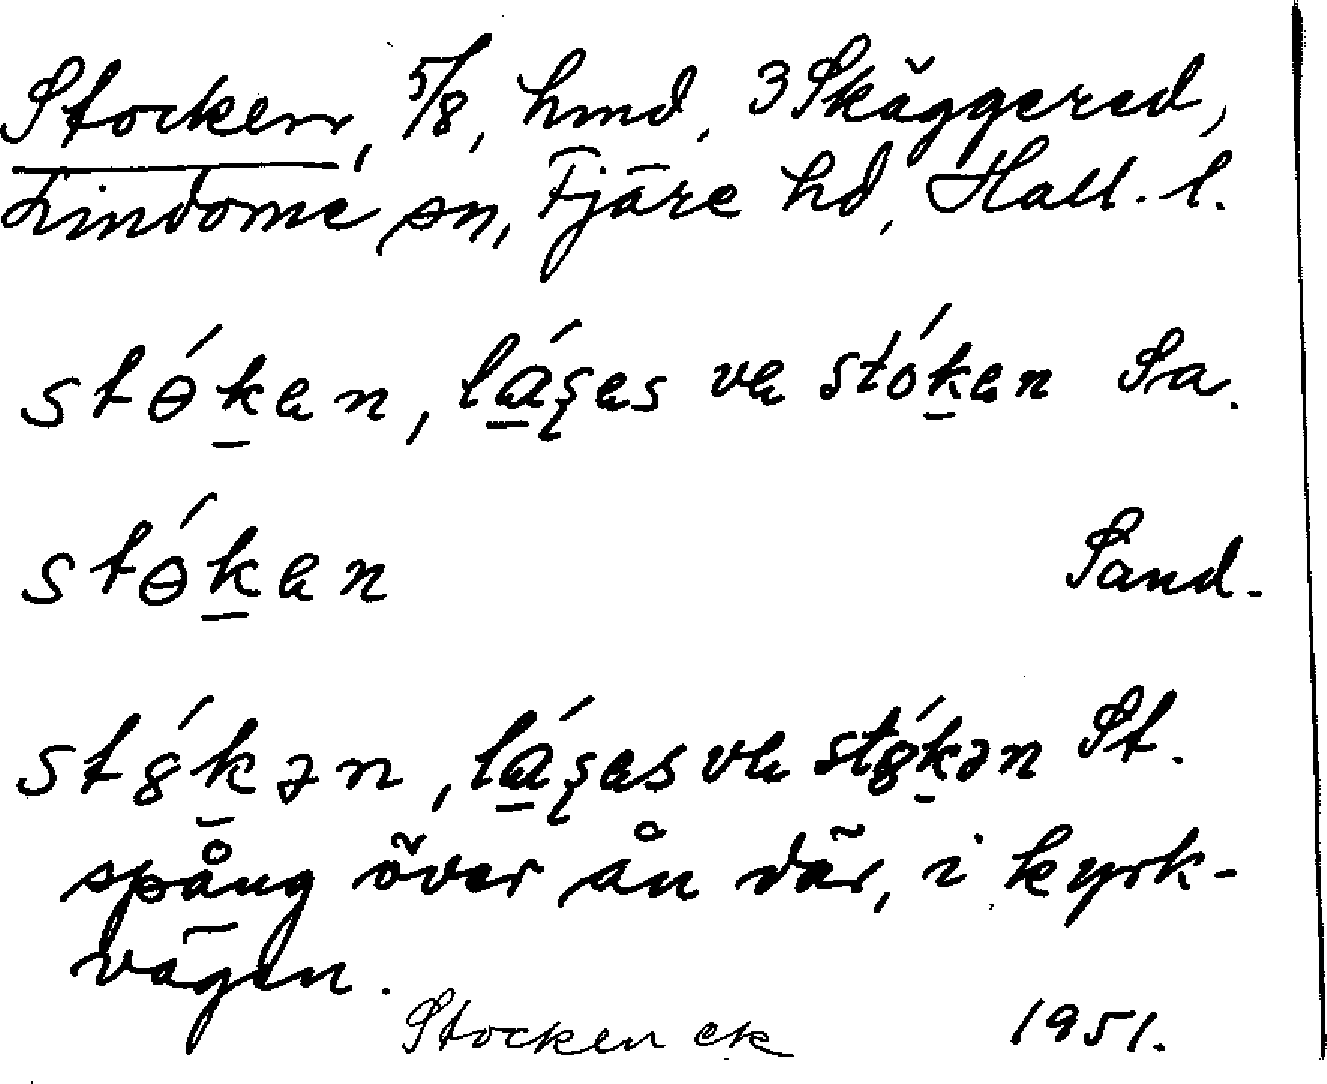 Stocken, 5/8, hmd, 3 Skäggered,
Lindome sn, Fjäre hd, Hall. l.
stɵ́k̠en, lá̠ʂes ve stók̠en Sa.
stɵ́k̠en Sand.
st8́k̠ən, lá̠ʂes ve st8́k̠ən St.
spång över ån där, i kyrk-
vägen.
Stocken ek 1951.